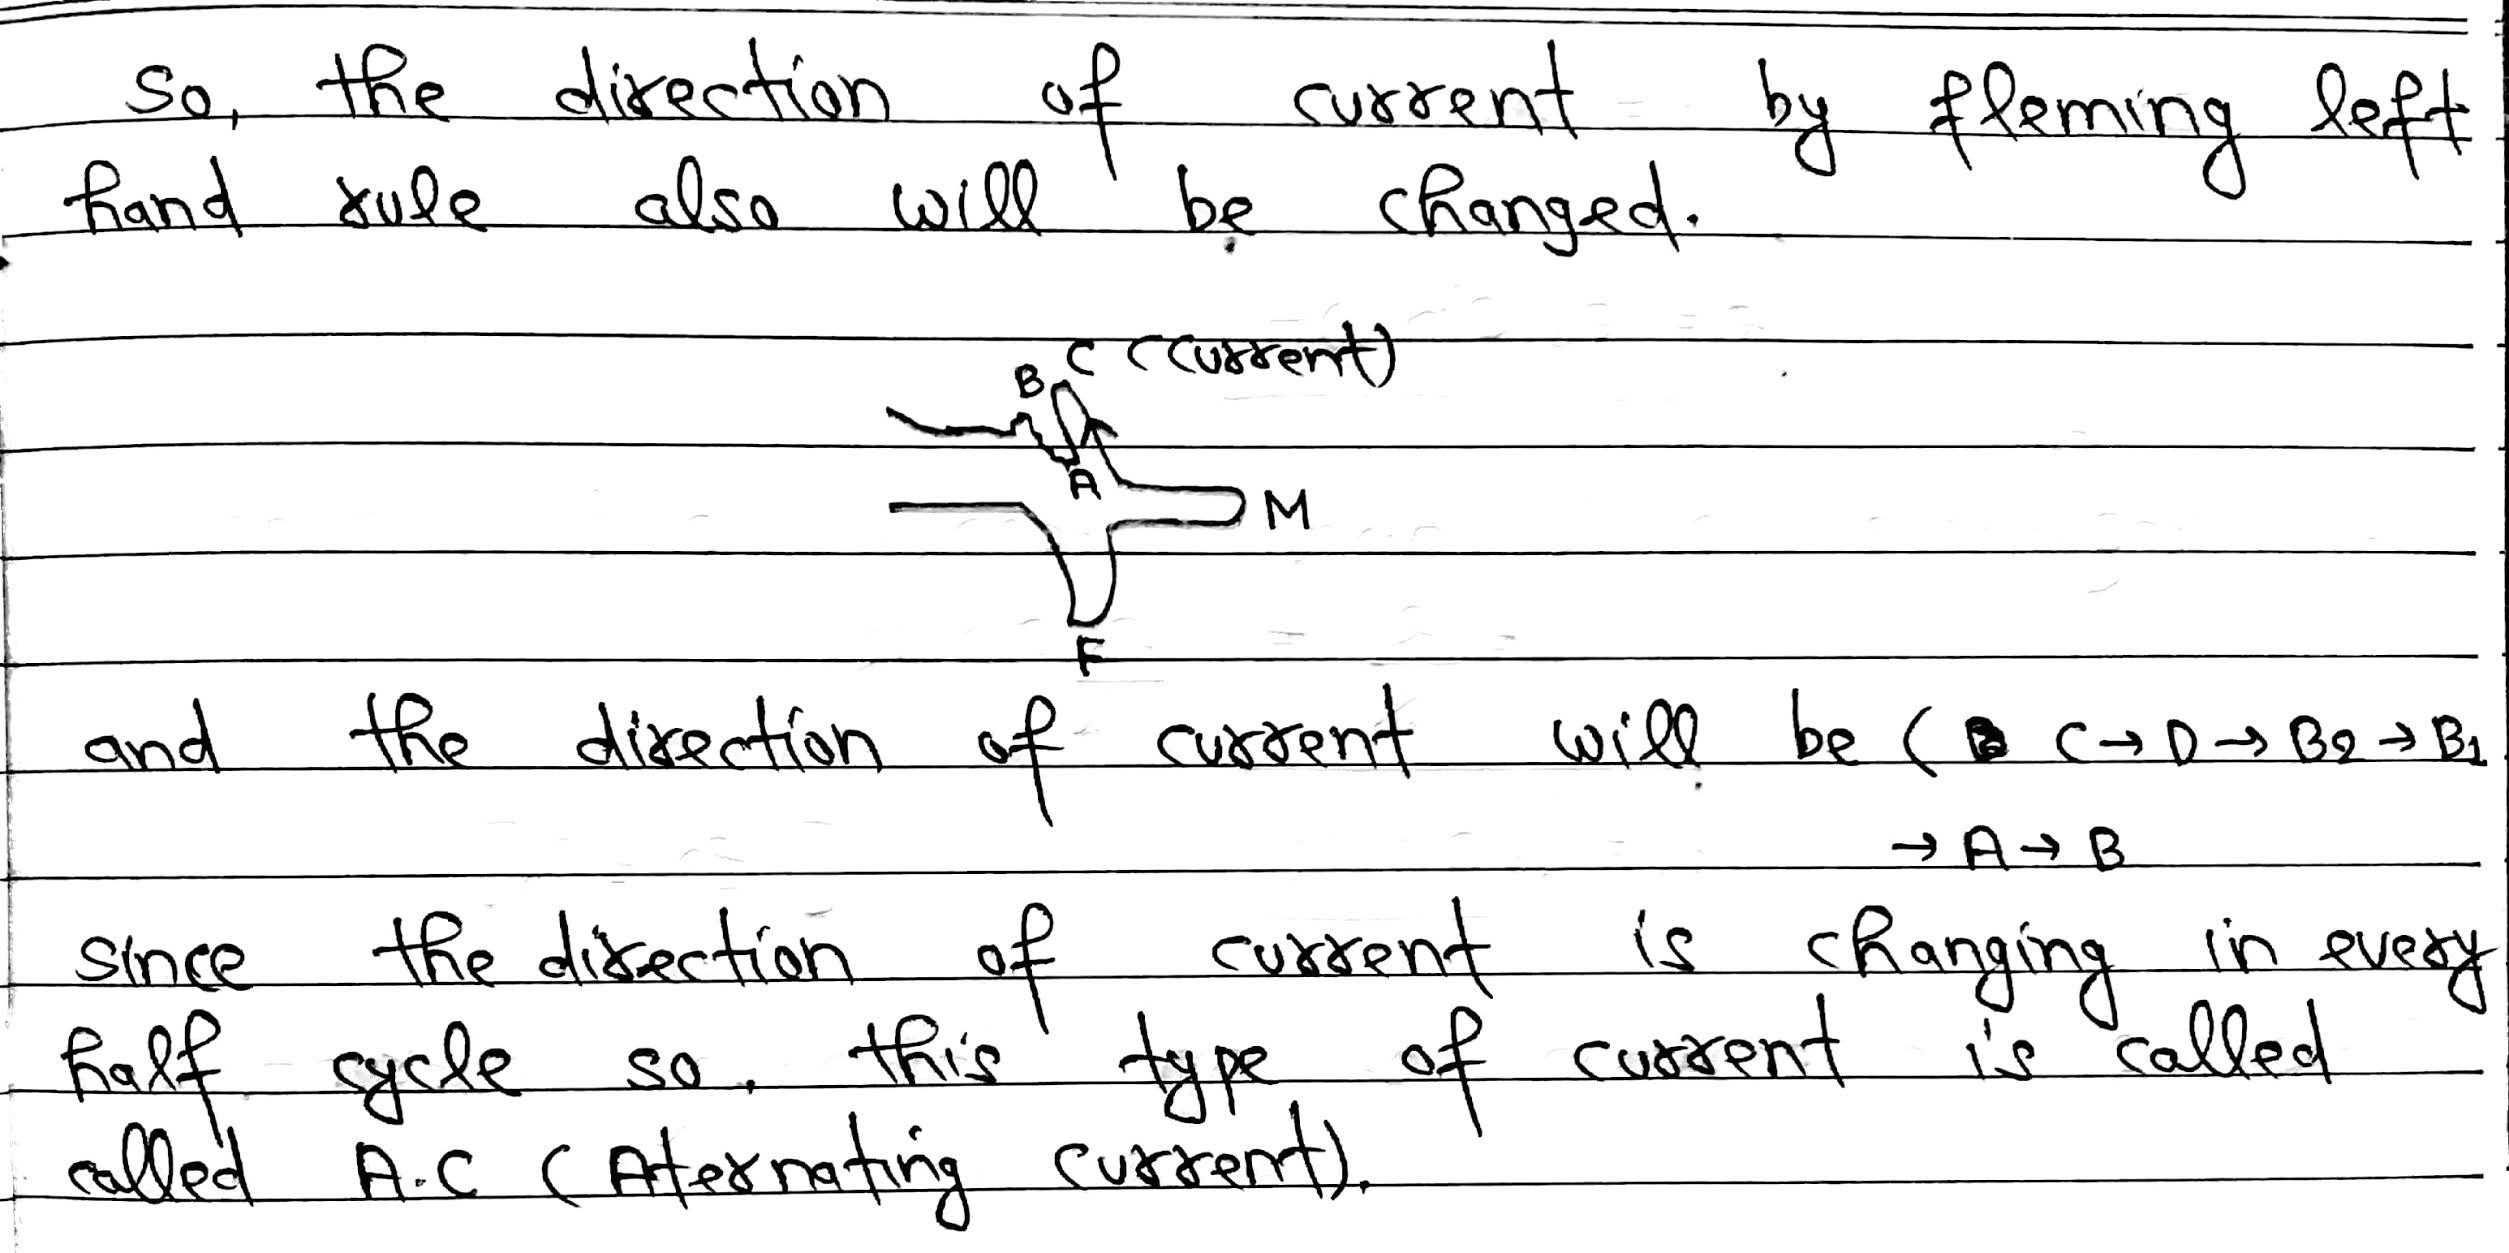 So, the direction of current by fleming left
hand rule also will be changed.
C (Current)
B
A
M
F
and the direction of current will be ( C → D → B2 → B1
→ A → B
since the direction of current is changing in every
half cycle so. this type of current is called
called A.C (Aternating current).